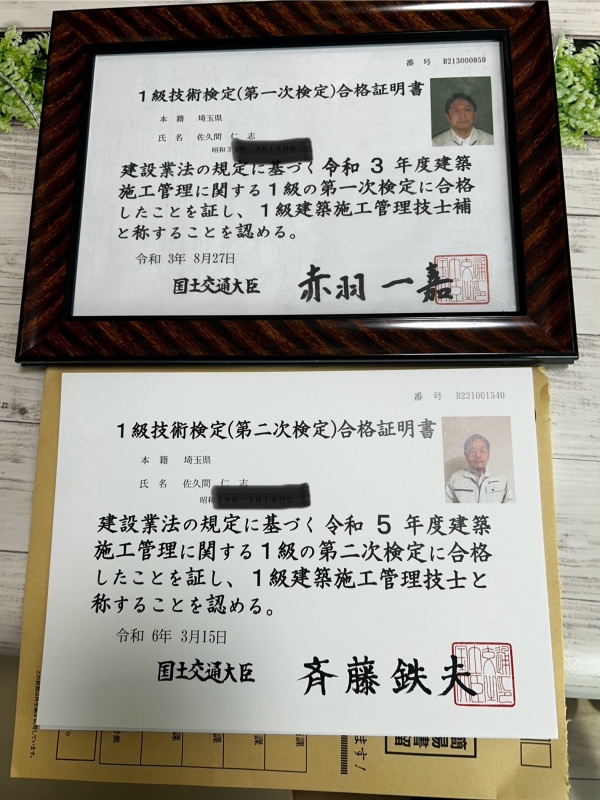 番 号 B213000959
1級技術検定(第一次検定)合格証明書
本 籍 埼玉県
氏 名 佐久間 仁 志
昭和
建設業法の規定に基づく令和 3 年度建築
施工管理に関する1級の第一次検定に合格
したことを証し、1級建築施工管理技士補
と称することを認める。
令和 3年 8月27日
国土交通大臣 赤羽 一嘉
番 号 B231001540
1級技術検定(第二次検定)合格証明書
本 籍 埼玉県
氏 名 佐久間 仁 志
昭和
建設業法の規定に基づく令和 5 年度建築
施工管理に関する1級の第二次検定に合格
したことを証し、1級建築施工管理技士と
称することを認める。
令和 6年 3月15日
国土交通大臣 斉藤 鉄夫
課
課
課
ます!
簡易書留